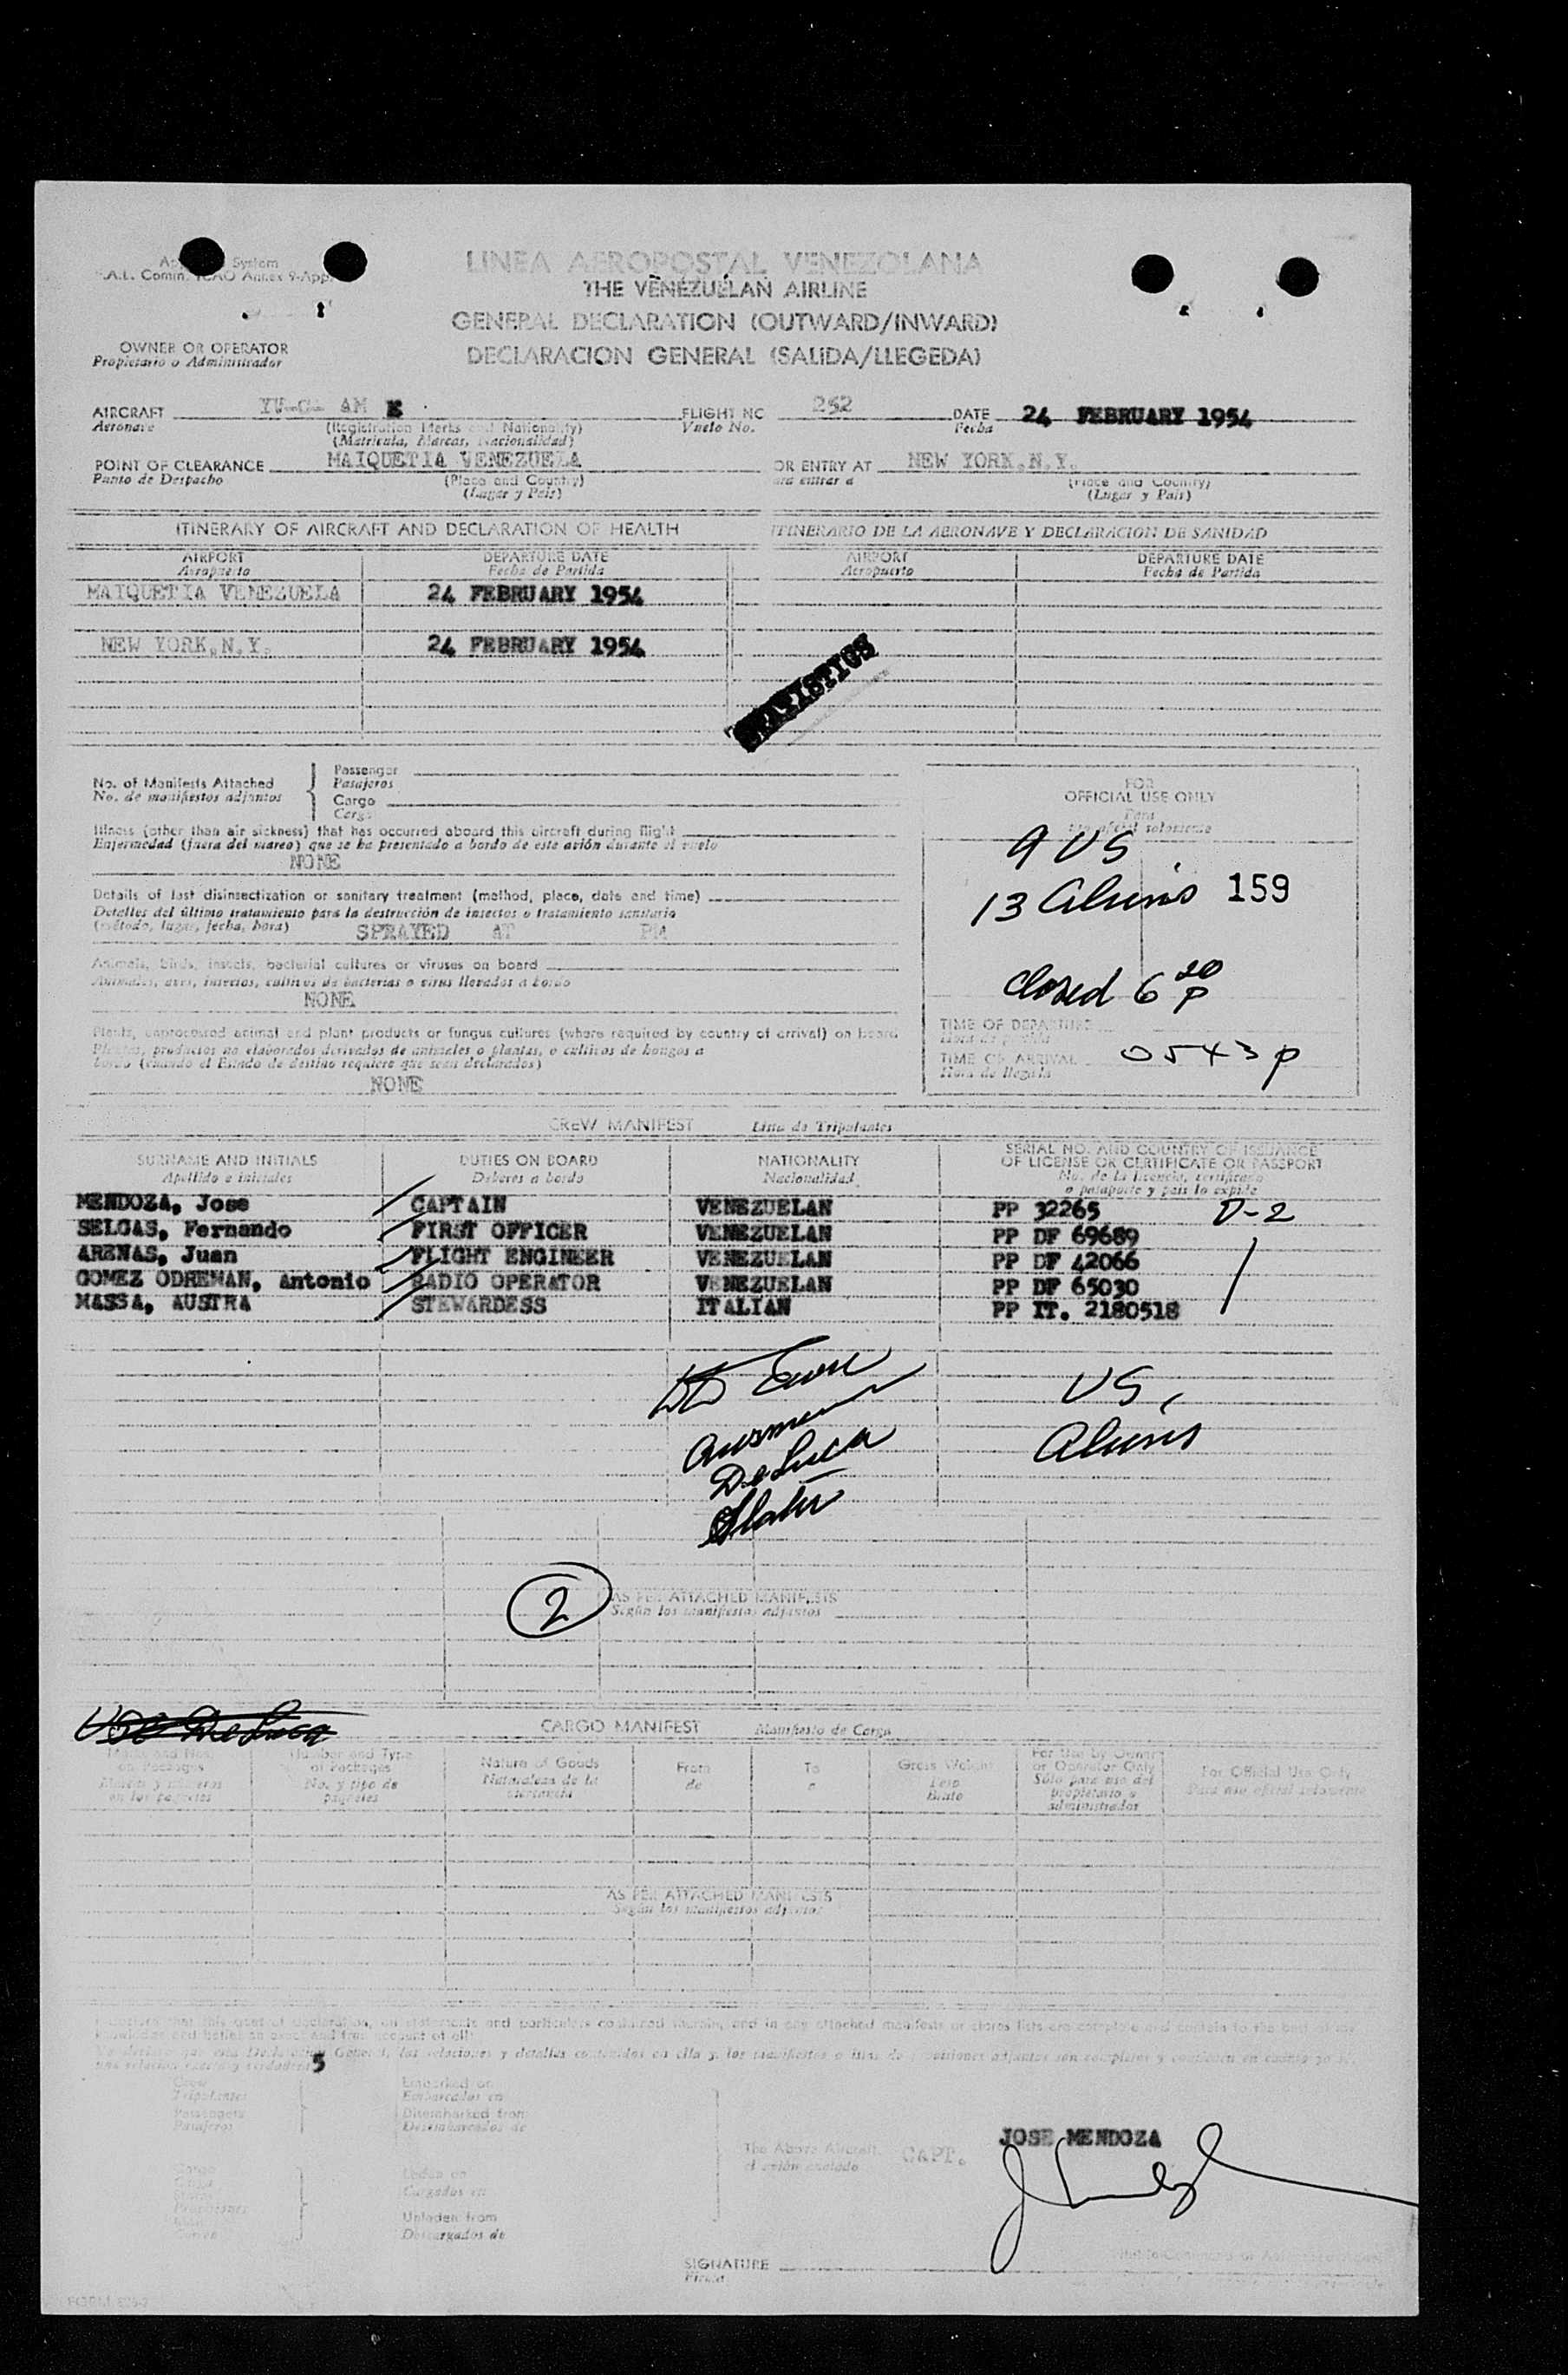 System
LINEA AEROPOSTAL VENEZOLANA
THE VENEZUELAN AIRLINE
GENERAL DECLARATION (OUTWARD/INWARD)
DECLARACION GENERAL (SALIDA/LLEGEDA)
OWNER OR OPERATOR
Propietario o Administrador
AIRCRAFT YV-C- AM E FLIGHT NO 252 DATE 24 FEBRUARY 1954
Aeronave (Registration Marks and Nationality) Vuelo No. Fecha
(Matricula, Marcas, Nacionalidad)
POINT OF CLEARANCE MAIQUETIA VENEZUELA OR ENTRY AT NEW YORK, N.Y.
Punto de Despacho (Place and Country) ara entrar a (Place and Country)
(Lugar y Pais) (Lugar y Pais)
ITINERARY OF AIRCRAFT AND DECLARATION OF HEALTH ITINERARIO DE LA AERONAVE Y DECLARACION DE SANIDAD
AIRPORT DEPARTURE DATE AIRPORT DEPARTURE DATE
Aeropuerto Fecha de Partida Aeropuerto Fecha de Partida
MAIQUETIA VENEZUELA 24 FEBRUARY 1954
NEW YORK, N.Y. 24 FEBRUARY 1954
STATISTICS
No. of Manifests Attached
No. de manifiestos adjuntos
Passenger
Pasajeros
Cargo
Carga
FOR
OFFICIAL USE ONLY
Para
Uso oficial solamente
Illness (other than air sickness) that has occurred aboard this aircraft during flight
Enfermedad (fuera del mareo) que se ha presentado a bordo de este avión durante el vuelo
NONE
9 US
13 Aliens 159
Details of last disinsectization or sanitary treatment (method, place, date and time)
Detalles del último tratamiento para la destrucción de insectos o tratamiento sanitario
(método, lugar, fecha, hora) SPRAYED AT PM
Animals, birds, insects, bacterial cultures or viruses on board
Animales, aves, insectos, cultivos de bacterias o virus llevados a bordo
NONE
Closed 6 20 P
Plants, unprocessed animal and plant products or fungus cultures (where required by country of arrival) on board
Plantas, productos no elaborados derivados de animales o plantas, o cultivos de hongos a
bordo (cuando el Estado de destino requiere que sean declarados)
NONE
TIME OF DEPARTURE
Hora de partida
TIME OF ARRIVAL 0543 p
Hora de llegada
CREW MANIFEST Lista de Tripulantes
SURNAME AND INITIALS DUTIES ON BOARD NATIONALITY SERIAL NO. AND COUNTRY OF ISSUANCE
OF LICENSE OR CERTIFICATE OR PASSPORT
Apellido e iniciales Deberes a bordo Nacionalidad No. de la licencia, certificado
o pasaporte y pais lo expide
MENDOZA, Jose CAPTAIN VENEZUELAN PP 32265 D-2
SELGAS, Fernando FIRST OFFICER VENEZUELAN PP DF 69689
ARENAS, Juan FLIGHT ENGINEER VENEZUELAN PP DF 42066
GOMEZ ODREMAN, Antonio RADIO OPERATOR VENEZUELAN PP DF 65030
MASSA, AUSTRA STEWARDESS ITALIAN PP IT. 2180518
US,
Aliens
De Luca
2
AS PER ATTACHED MANIFESTS
Según los manifiestos adjuntos
De Luca
CARGO MANIFEST Manifiesto de Carga
Marks and Nos. on Packages
Number and Type of Packages
No. y tipo de paquetes
Nature of Goods
Naturaleza de la
From
de
To
a
Gross Weight
Peso Bruto
For Use by Owner or Operator Only
Sólo para uso del propietario o administrador
For Official Use Only
Para uso oficial solamente
AS PER ATTACHED MANIFESTS
Según los manifiestos adjuntos
5
Crew
Tripulantes
Passengers
Pasajeros
Embarked on
Embarcados en
Disembarked from
Desembarcados de
The Above Aircraft
el avión anotado
CAPT. JOSE MENDOZA
Laden on
Cargados en
Unladen from
Descargados de
SIGNATURE
Firma